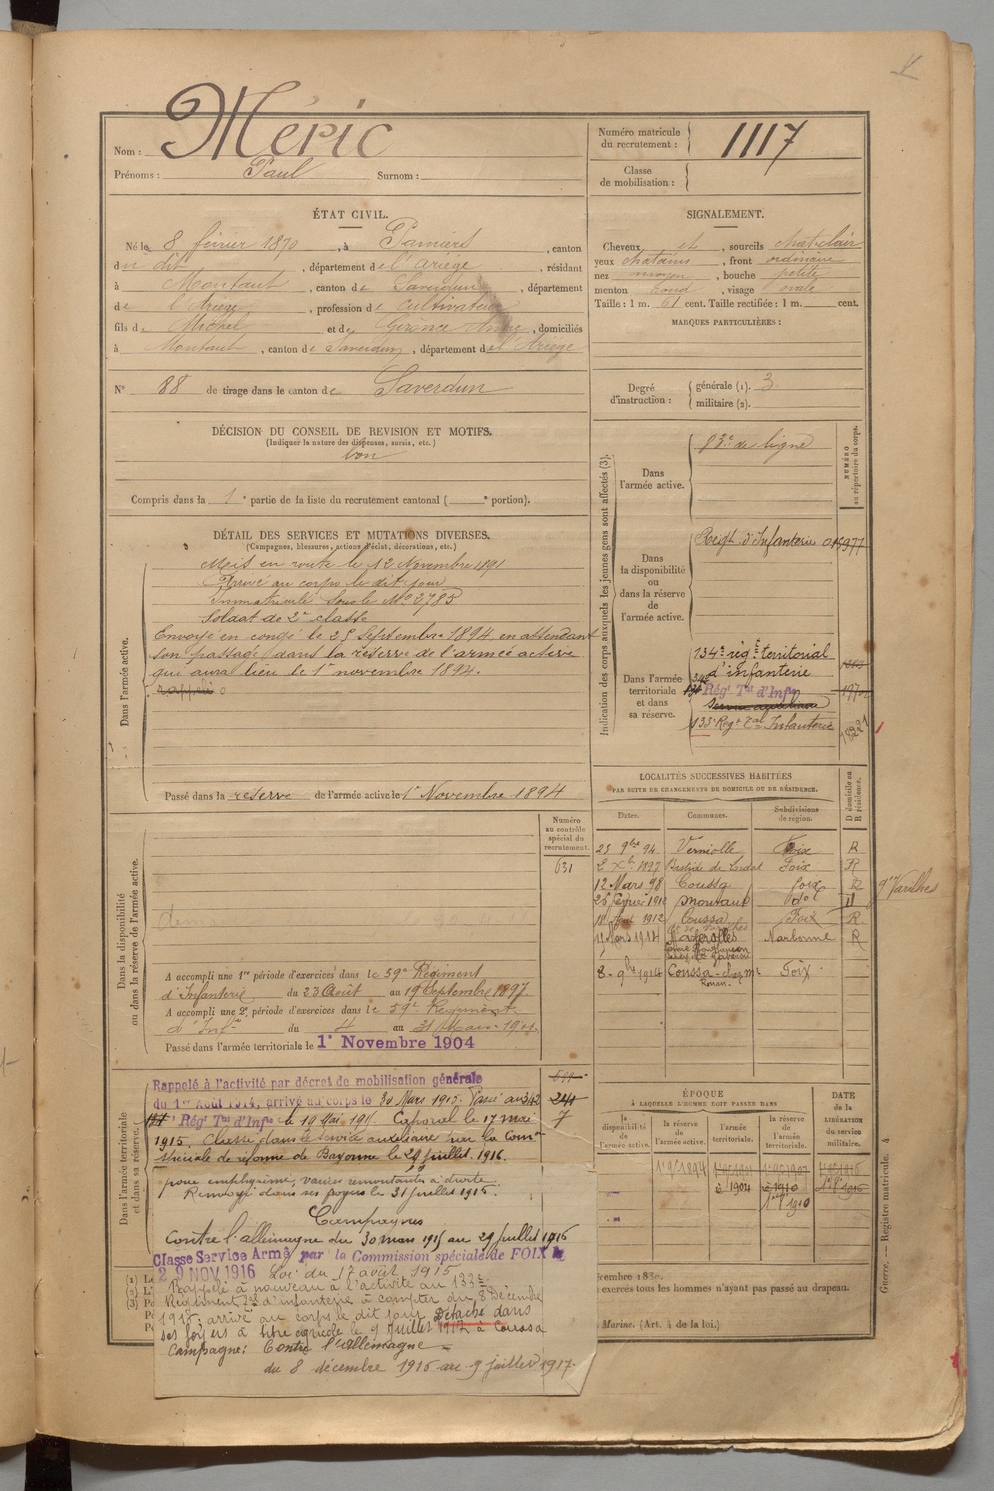 Nom : Méric
Prénoms : Paul Surnom :
Numéro matricule du recrutement : 1117
Classe de mobilisation :
ÉTAT CIVIL.
Né le 8 février 1870, à Pamiers, canton
du dit, département de l'Ariège, résidant
à Montaut, canton de Saverdun, département
de l'Ariège, profession de cultivateur
fils de Michel et de Anne, domiciliés
à Montaut, canton de Saverdun, département de l'Ariège
N° 88 de tirage dans le canton de Saverdun
DÉCISION DU CONSEIL DE REVISION ET MOTIFS.
(Indiquer la nature des dispenses, sursis, etc.)
bon
Compris dans la 1e partie de la liste du recrutement cantonal ( e portion).
SIGNALEMENT.
Cheveux et, sourcils chat-clair
yeux chatains, front ordinaire
nez moyen, bouche petite
menton rond, visage ovale
Taille : 1 m. 61 cent. Taille rectifiée : 1 m. cent.
MARQUES PARTICULIÈRES :
Degré d'instruction : générale (1). 3
militaire (2).
DÉTAIL DES SERVICES ET MUTATIONS DIVERSES.
(Campagnes, blessures, actions d'éclat, décorations, etc.)
Dans l'armée active.
Mis en route le 12 Novembre 1891
Arrivé au corps le dit jour
Immatriculé sous le No 2785
Soldat de 2e classe
Envoyé en congé le 25 Septembre 1894, en attendant
son passage dans la réserve de l'armée active
qui aura lieu le 1r novembre 1894.
rappelé
Passé dans la réserve de l'armée active le 1r Novembre 1894
Indication des corps auxquels les jeunes gens sont affectés (3).
NUMÉRO au répertoire du corps.
Dans l'armée active.
83e de ligne
Dans la disponibilité ou dans la réserve de l'armée active.
Régt d'Infanterie
Dans l'armée territoriale et dans sa réserve.
134e régt territorial
d'infanterie
Régt Tal d'Infie
Service auxiliaire
133e Régt Tal Infanterie
LOCALITÉS SUCCESSIVES HABITÉES
PAR SUITE DE CHANGEMENTS DE DOMICILE OU DE RÉSIDENCE.
D domicile ou R résidence.
Dates. Communes. Subdivisions de région.
25 9bre 94 Verniolle Foix R
2 Xbre 1897 Bastide de Foix R
12 Mars 98 Coussa foix R gn Varilhes
26 février 1910 Montaut do
18 1912 Coussa Foix R
11 Mars 1914 Narbonne R
8 - 9bre 1914 Coussa - chez Mr Foix
Dans la disponibilité ou dans la réserve de l'armée active.
Numéro au contrôle spécial du recrutement.
631
A accompli une 1re période d'exercices dans le 59e Régiment
d'Infanterie du 23 Août au 19 Septembre 1897
A accompli une 2e période d'exercices dans le 59e Régiment
d'Infrie du 4 au 31 Mars 1901
Passé dans l'armée territoriale le 1r Novembre 1904
Dans l'armée territoriale et dans sa réserve.
Rappelé à l'activité par décret de mobilisation générale
du 1er Août 1914, arrivé au corps le 30 Mars 1915. Passé au 342
Régt Tal d'Infie le 19 Mai 1915. Caporal le 17 mai 7
1915. Classé dans le service auxiliaire par la Comon
spéciale de réforme de Bayonne le 29 juillet 1916.
pour emphysème, varices remontantes à droite.
Renvoyé dans ses foyers le 31 juillet 1916.
Campagnes
Contre l'allemagne du 30 mars 1915 au 29 juillet 1916
Classé Service Armé par la Commission spéciale de FOIX le
29 NOV 1916 Loi du 17 août 1915
Rappelé à nouveau à l'activité au 133e
Régiment Tal d'infanterie à compter du 8 Décembre
arrivé au corps le dit jour. Détaché dans
ses foyers à titre agricole le 9 Juillet 1917 à Coussa
Campagne : Contre l'allemagne
du 8 décembre 1916 au 9 juillet 1917.
ÉPOQUE
À LAQUELLE L'HOMME DOIT PASSER DANS
la disponibilité de l'armée active. la réserve de l'armée active. l'armée territoriale. la réserve de l'armée territoriale.
DATE de la LIBÉRATION du service militaire.
1r 9/1894
1904
1910
exercés tous les hommes n'ayant pas passé au drapeau.
Marine. (Art. 4 de la loi.)
Guerre. — Registre matricule. 4